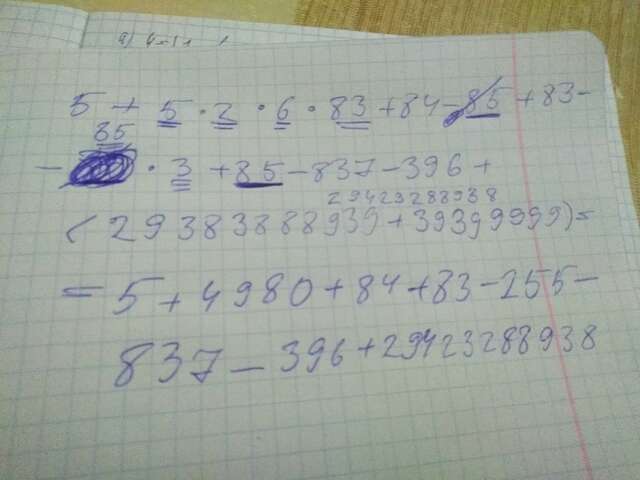 5 + 5 · 2 · 6 · 83 + 84 - 85 + 83 -
85
- · 3 + 85 - 837 - 396 +
29423288938
(29383888939 + 39399999) =
= 5 + 4980 + 84 + 83 - 255 -
837 - 396 + 29423288938